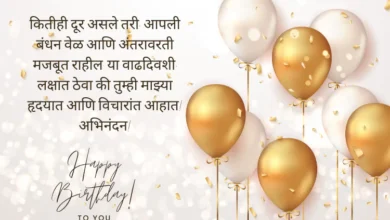 कितीही दूर असले तरी आपली
बंधन वेळ आणि अंतरावरती
मजबूत राहील या वाढदिवशी
लक्षांत ठेवा की तुम्ही माझ्या
हृदयात आणि विचारांत आहात/
अभिनंदन/
Happy
Birthday!
TO YOU